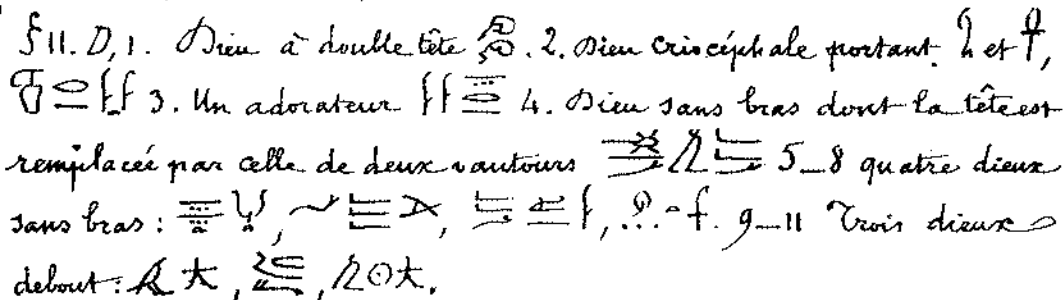 §11. D, 1. Dieu à double tête . 2. Dieu criocéphale portant et ,
3. Un adorateur 4. Dieu sans bras dont la tête est
remplacée par celle de deux vautours 5_8 quatre dieux
sans bras : , , , . 9_11 Trois dieux
debout : , , .